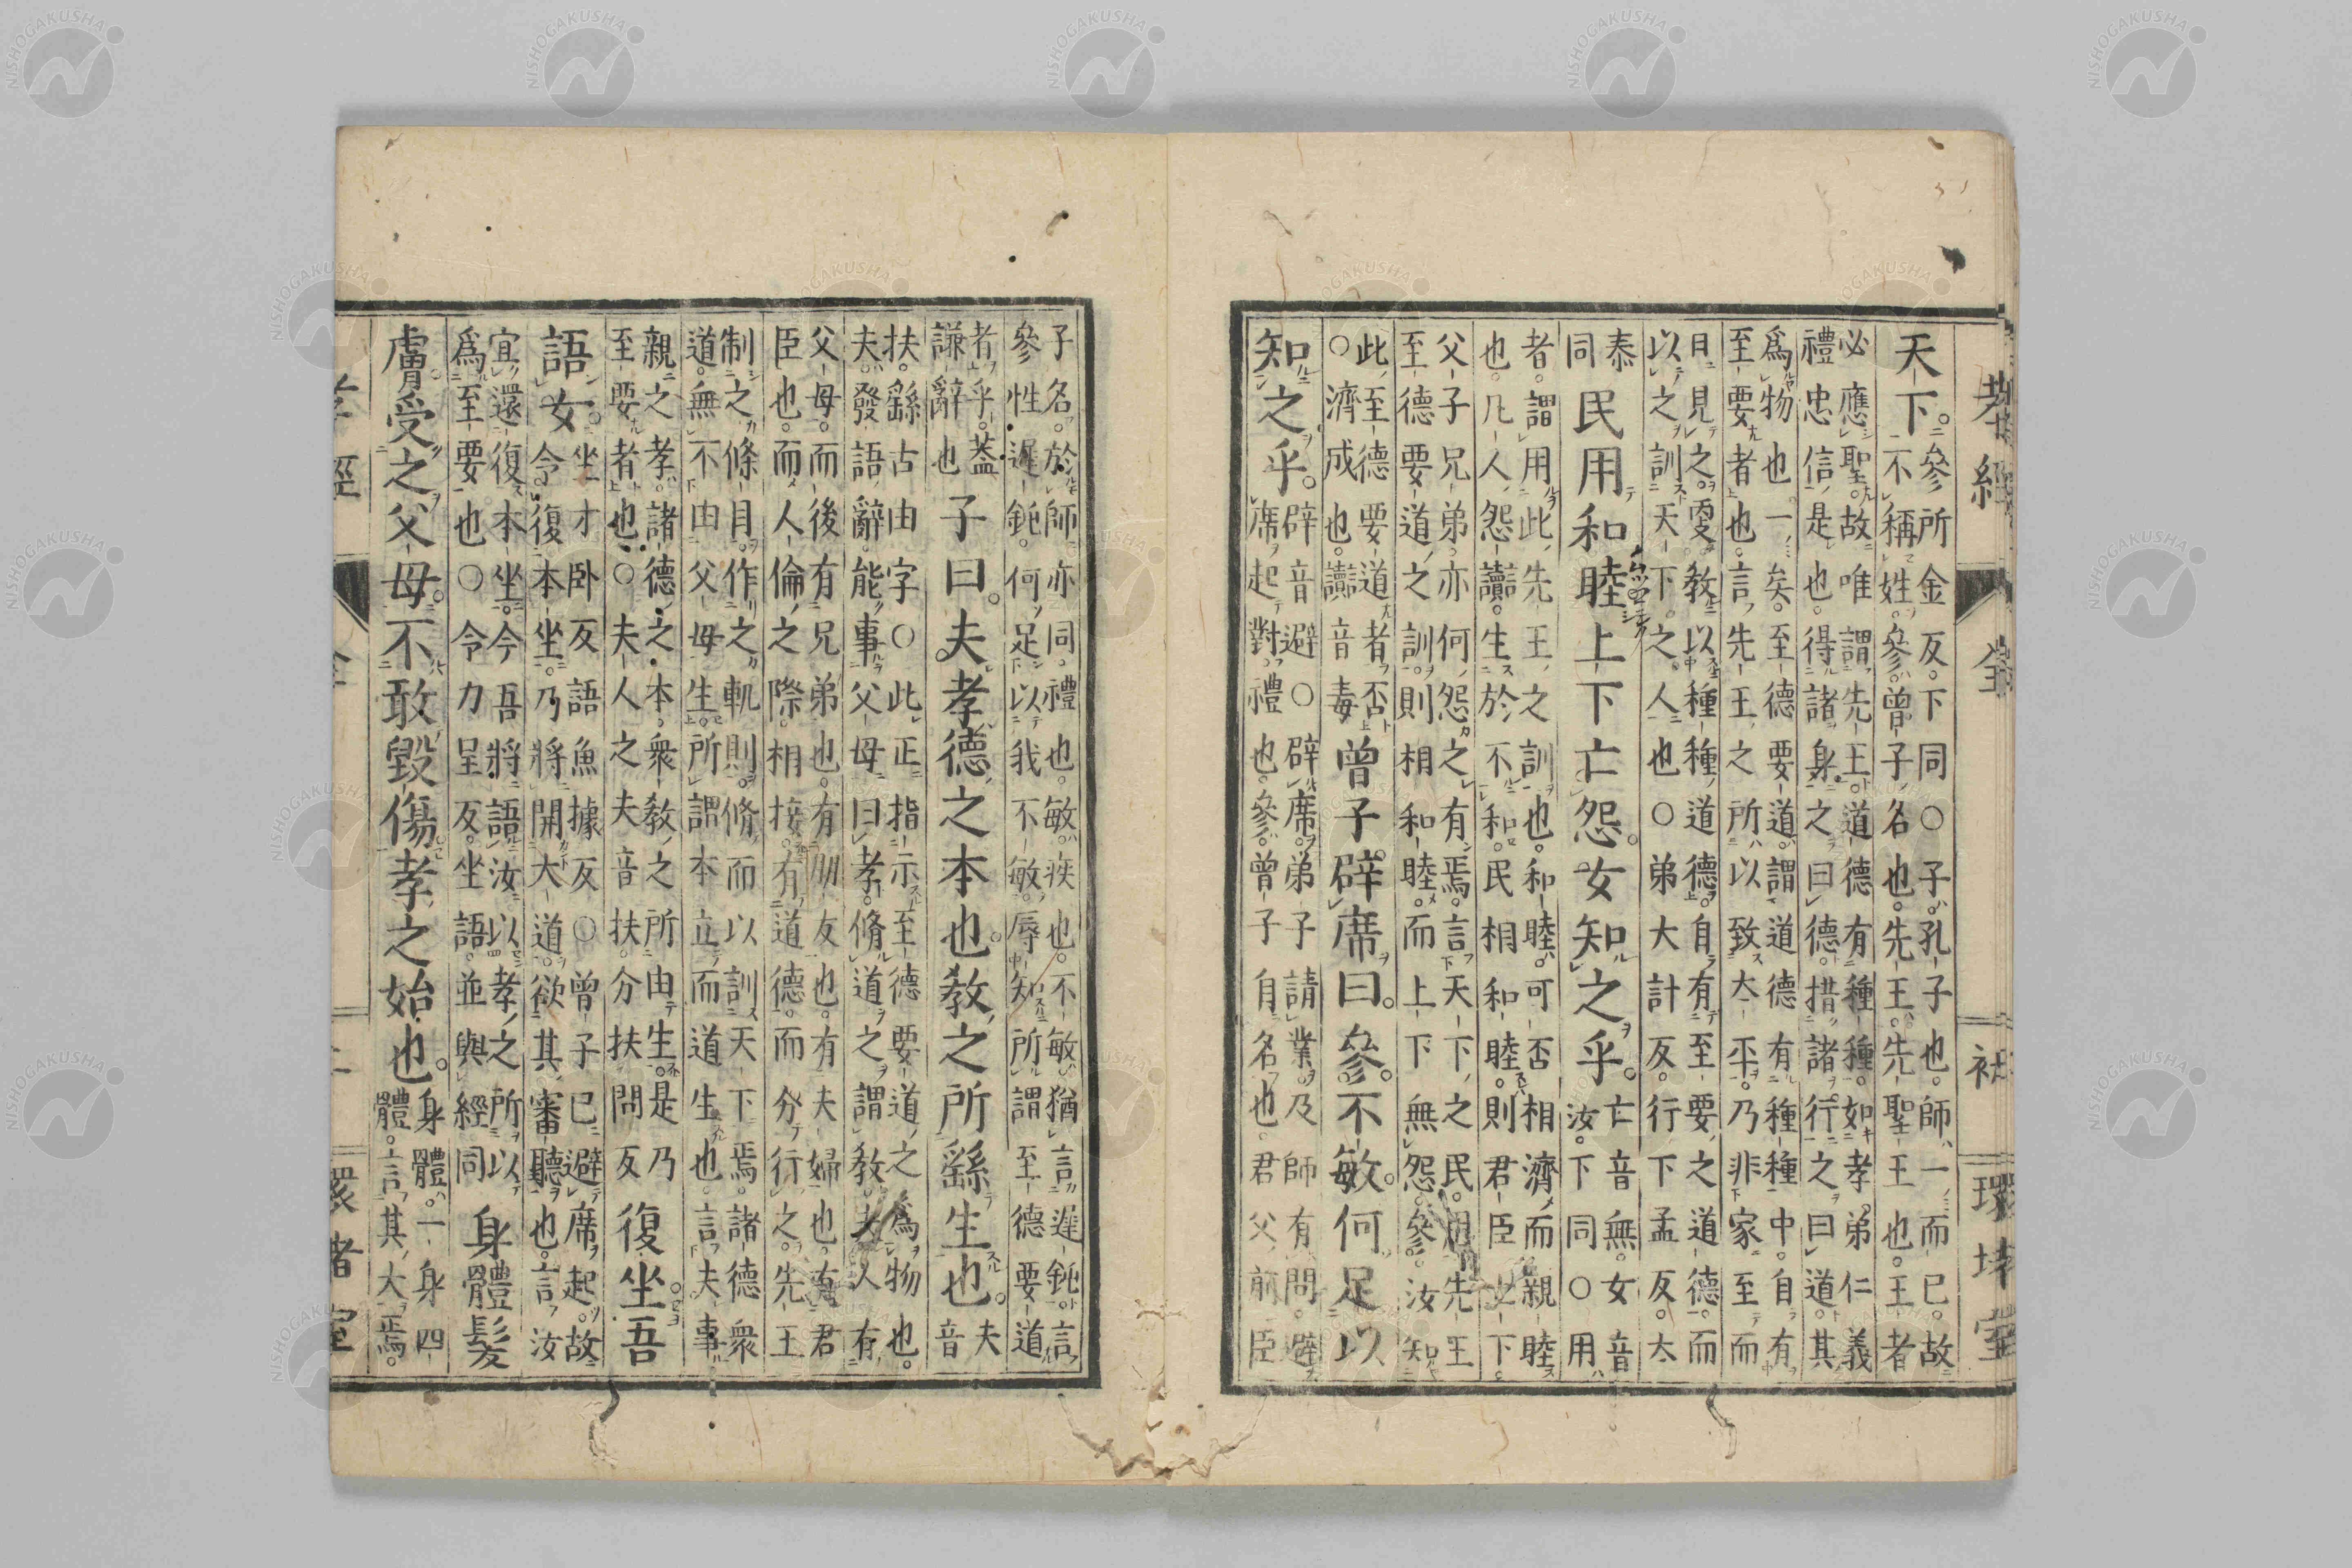 孝經 全 環堵室
天下
參所金反下同○子孔子也師一而已故
不稱姓參曾子名也先王先聖王也王者
必應聖故唯謂先王道德有種種如孝弟仁義
禮忠信是也得諸身之曰德措諸行之曰道其
爲物也一矣至德要道謂道德有種種中自有
至要者也言先王之所以致太平乃非家至而
日見之更教以種種道德自有至要之道德而
以之訓天下之人也○弟大計反行下孟反太
泰
同
民用和睦上下亡怨女知之乎
亡音無女音
汝下同○用
者謂用此先王之訓也和睦可否相濟而親睦
也凡人怨讟生於不和民相和睦則君臣上下
父子兄弟亦何怨之有焉言天下之民用先王
至德要道之訓則相和睦而上下無怨參汝知
此至德要道者否
○濟成也讟音毒
曾子辟席曰參不敏何足以
知之乎
辟音避○辟席弟子請業及師有問避
席起對禮也參曾子自名也君父前臣
子名於師亦同禮也敏疾也不敏猶言遲鈍言
參性遲鈍何足以我不敏辱知所謂至德要道
者乎蓋
謙辭也
子曰夫孝德之本也教之所繇生也
夫
音
扶繇古由字○此正指示至德要道之爲物也
夫發語辭能事父母曰孝脩道之謂教夫人有
父母而後有兄弟也有朋友也有夫婦也有君
臣也而人倫之際相接有道德而分行之先王
制之條目作之軌則脩而以訓天下焉諸德衆
道無不由父母生所謂本立而道生也言夫事
親之孝諸德之本衆教之所由生是乃
至要者也○夫人之夫音扶分扶問反
復坐吾
語女
坐才卧反語魚據反○曾子已避席起故
令復本坐乃將開大道欲其審聽也言汝
宜還復本坐今吾將語汝以孝之所以
爲至要也○令力呈反坐語並與經同
身體髮
膚受之父母不敢毀傷孝之始也
身體一身四
體言其大焉